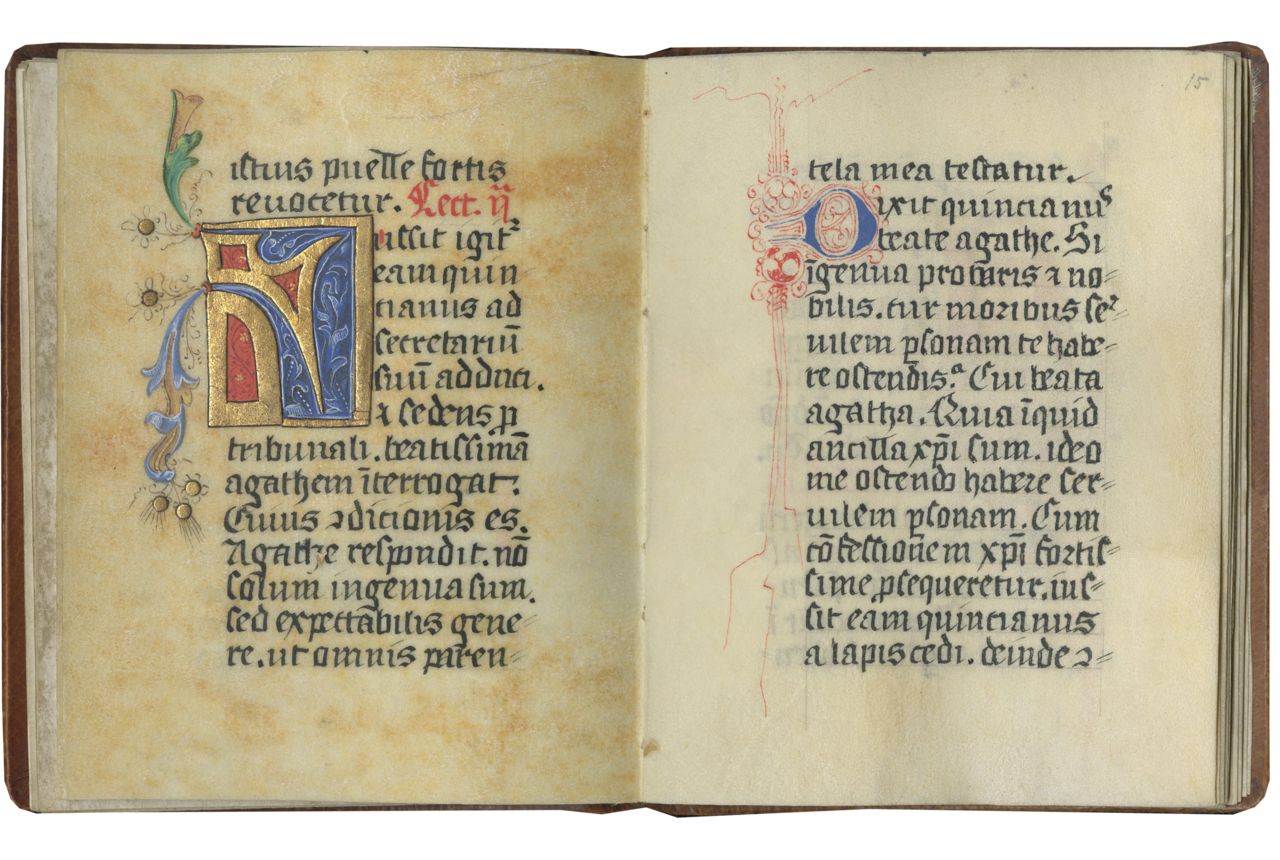 istius puelle fortis
reuocetur. Lect. ij
ussit igit᷑
eam quin⸗
cianus ad
secretariū
suū adduci.
⁊ sedens p̱
tribunali. beatissimā
agathem īterrogat᷑.
Cuius ꝯdicionis es.
Agathe respondit. nō
solum ingenua sum.
sed expectabilis gene⸗
re. ut omnis paren⸗
15
tela mea testatur.
Dixit quincianus
beate agathe. Si
īgenua procaris ⁊ no⸗
bilis. cur moribus ser⸗
uilem ꝑsonam te habe⸗
re ostendis. Cui beata
agatha. Quia īquid
ancilla xp̄i sum. ideo
me ostendo habere ser⸗
uilem ꝑsonam. Cum
cōfessionem xp̄i fortis⸗
sime ꝑsequeretur. ius⸗
sit eam quincianus
alapis cedi. deinde ⁊⸗